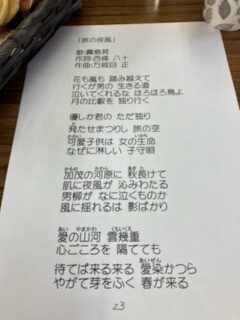 「旅の夜風」
歌:霧島昇
作詞:西條 八十
作曲:万城目 正
花も嵐も 踏み越えて
行くが男の 生きる道
泣いてくれるな ほろほろ鳥よ
月の比叡を 独り行く
優しか君の ただ独り
発たせまつりし 旅の空
可愛子供は 女の生命
なぜに淋しい 子守唄
加茂の河原に 秋長けて
肌に夜風が 沁みわたる
男柳が なに泣くものか
風に揺れるは 影ばかり
あい やまかわ くもいくえ
愛の山河 雲幾重
心ごころを 隔てても
あいぜん
待てば来る来る 愛染かつら
やがて芽をふく 春が来る
23